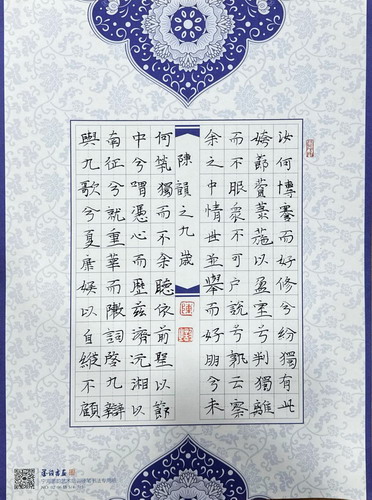 汝何博謇而好修兮紛獨有此
姱節薋菉葹以盈室兮判獨離
而不服衆不可戶說兮孰云察
余之中情世並舉而好朋兮未
陳韻之九歲
何煢獨而不余聽依前聖以節
中兮喟憑心而歷茲濟沅湘以
南征兮就重華而敶詞啓九辯
與九歌兮夏康娛以自縱不顧